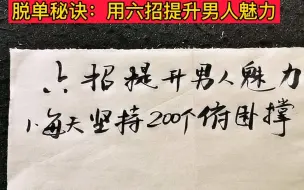 脱单秘诀：用六招提升男人魅力
六招提升男人魅力
1.每天坚持200个俯卧撑